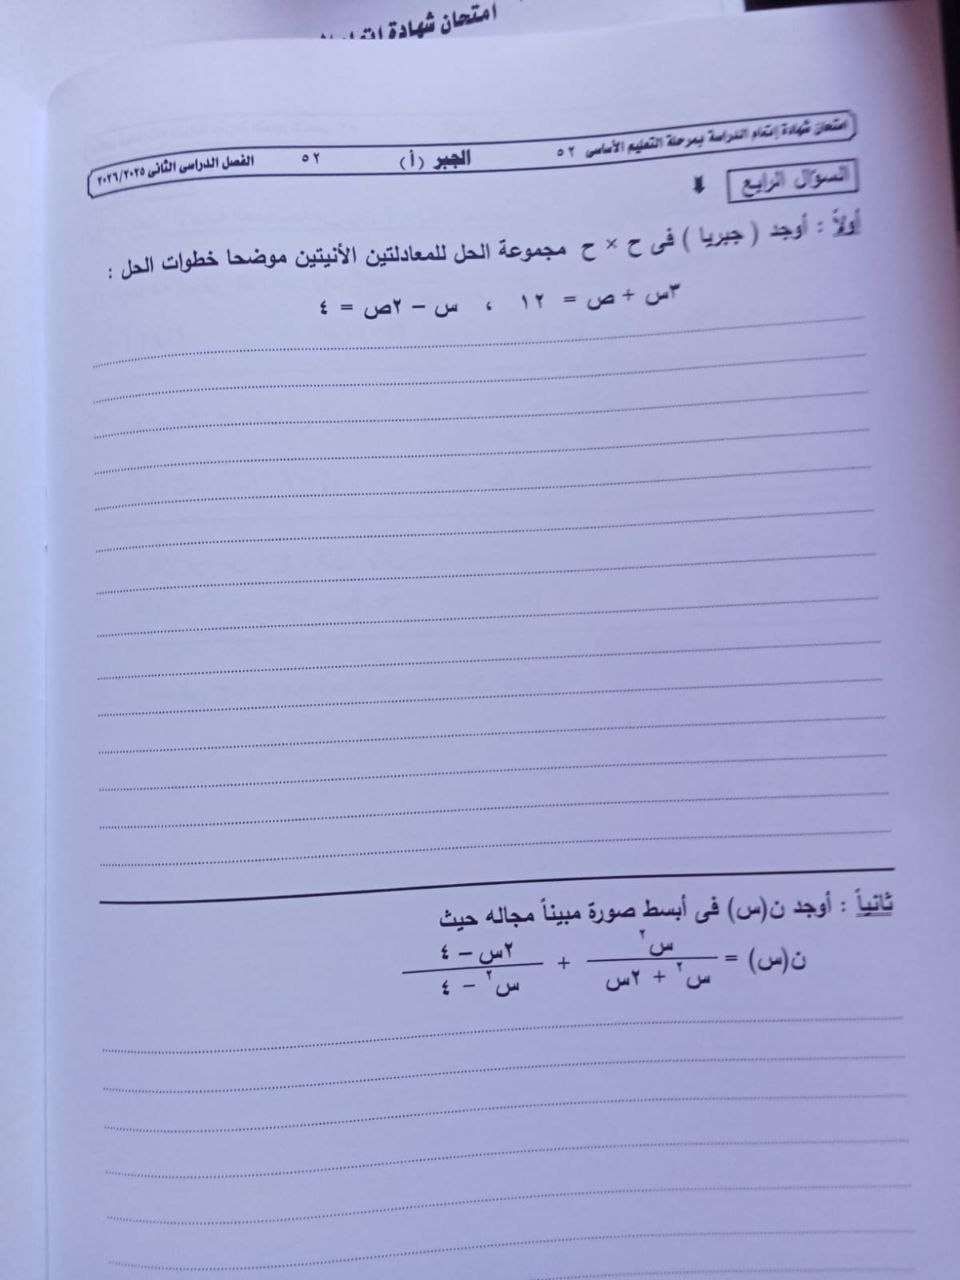 امتحان شهادة إتمام
امتحان شهادة إتمام الدراسة بمرحلة التعليم الأساسى ٥٢ الجبر (أ) ٥٢ الفصل الدراسى الثانى ٢٠٢٦/٢٠٢٥
السؤال الرابع
أولاً : أوجد ( جبريا ) فى ح × ح مجموعة الحل للمعادلتين الأنيتين موضحا خطوات الحل :
٣س + ص = ١٢ ، س − ٢ص = ٤
ثانياً : أوجد ن(س) فى أبسط صورة مبيناً مجاله حيث
ن(س) = س٢ / س٢ + ٢س + ٢س − ٤ / س٢ − ٤